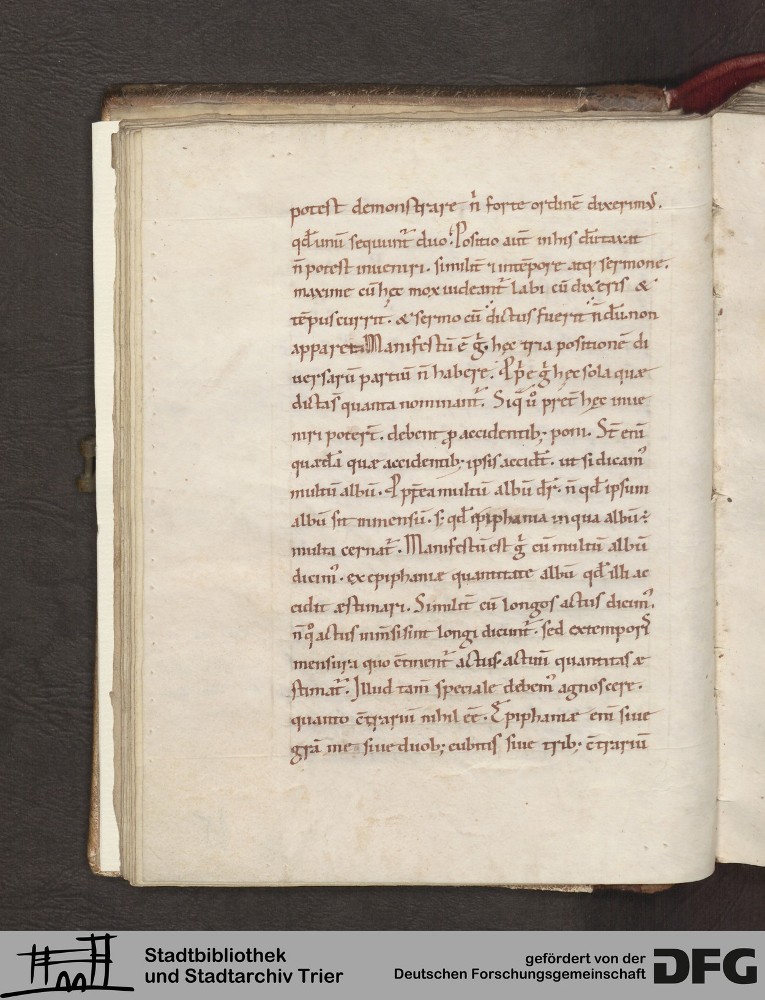 potest demonstrare n̄ forte ordinē dixerimꝰ.
qđ unū sequunt᷑ duo. Positio aut̄ in his dūtaxat
n̄ potest inueniri. similit̄ ⁊ intēpore atq; sermone.
maxime cū hęc mox uideant᷑ labi cū dixeris &
tēpus currit. & sermo cū dictus fuerit n̄dum non
apparet. Manifestū ē g̊. hęc tria positionē di
uersarū partiū n̄ habere. Pp̄e g̊ hęc sola quæ
dicta s̄ quanta nominant᷑. Siq̄ ů̊ pret̄ hęc inue
niri poter̄t. debent ꝓ accidentib; poni. St̄ enī
quædā quæ accidentib; ipsis accidt̄. ut si dicamꝰ
multū albū. Ppt̄ea multū albū dr̄. n̄ qđ ipsum
albū sit inmensū. s; qđ epiphania in qua albū ÷
multa cernat᷑. Manifestū est g̊ cū multū albū
dicimꝰ. ex epiphaniæ quantitate albū qđ illi ac
cidit æstimari. Similit̄ cū longos actus dicimꝰ.
n̄ q̊ actus inmensi sint longi dicunt᷑. sed ex temporis
mensura quo c̄tinent᷑ actus. actuū quantitas æ
stimat᷑. Illud tam̄ speciale debemꝰ agnoscere.
quanto c̄trariū nihil eē. Epiphaniæ enī siue
gram̄me siue duob; cubitis siue trib; c̄trariū
Stadtbibliothek
und Stadtarchiv Trier
gefördert von der
Deutschen Forschungsgemeinschaft
DFG